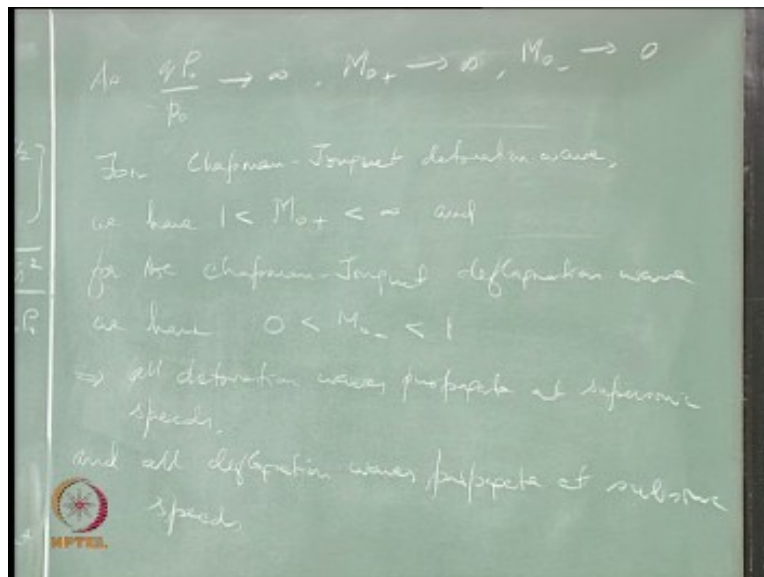 As qρ₀/p₀ → ∞, M₀₊ → ∞, M₀₋ → 0
For Chapman-Jouguet detonation wave,
we have 1 < M₀₊ < ∞ and
for the Chapman-Jouguet deflagration wave
we have 0 < M₀₋ < 1
⇒ all detonation waves propagate at supersonic
speeds,
and all deflagration waves propagate at subsonic
speeds
NPTEL